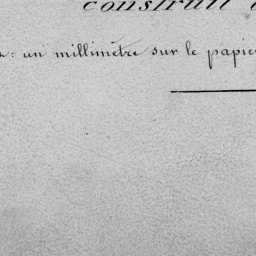 construit
: un millimètre sur le papier